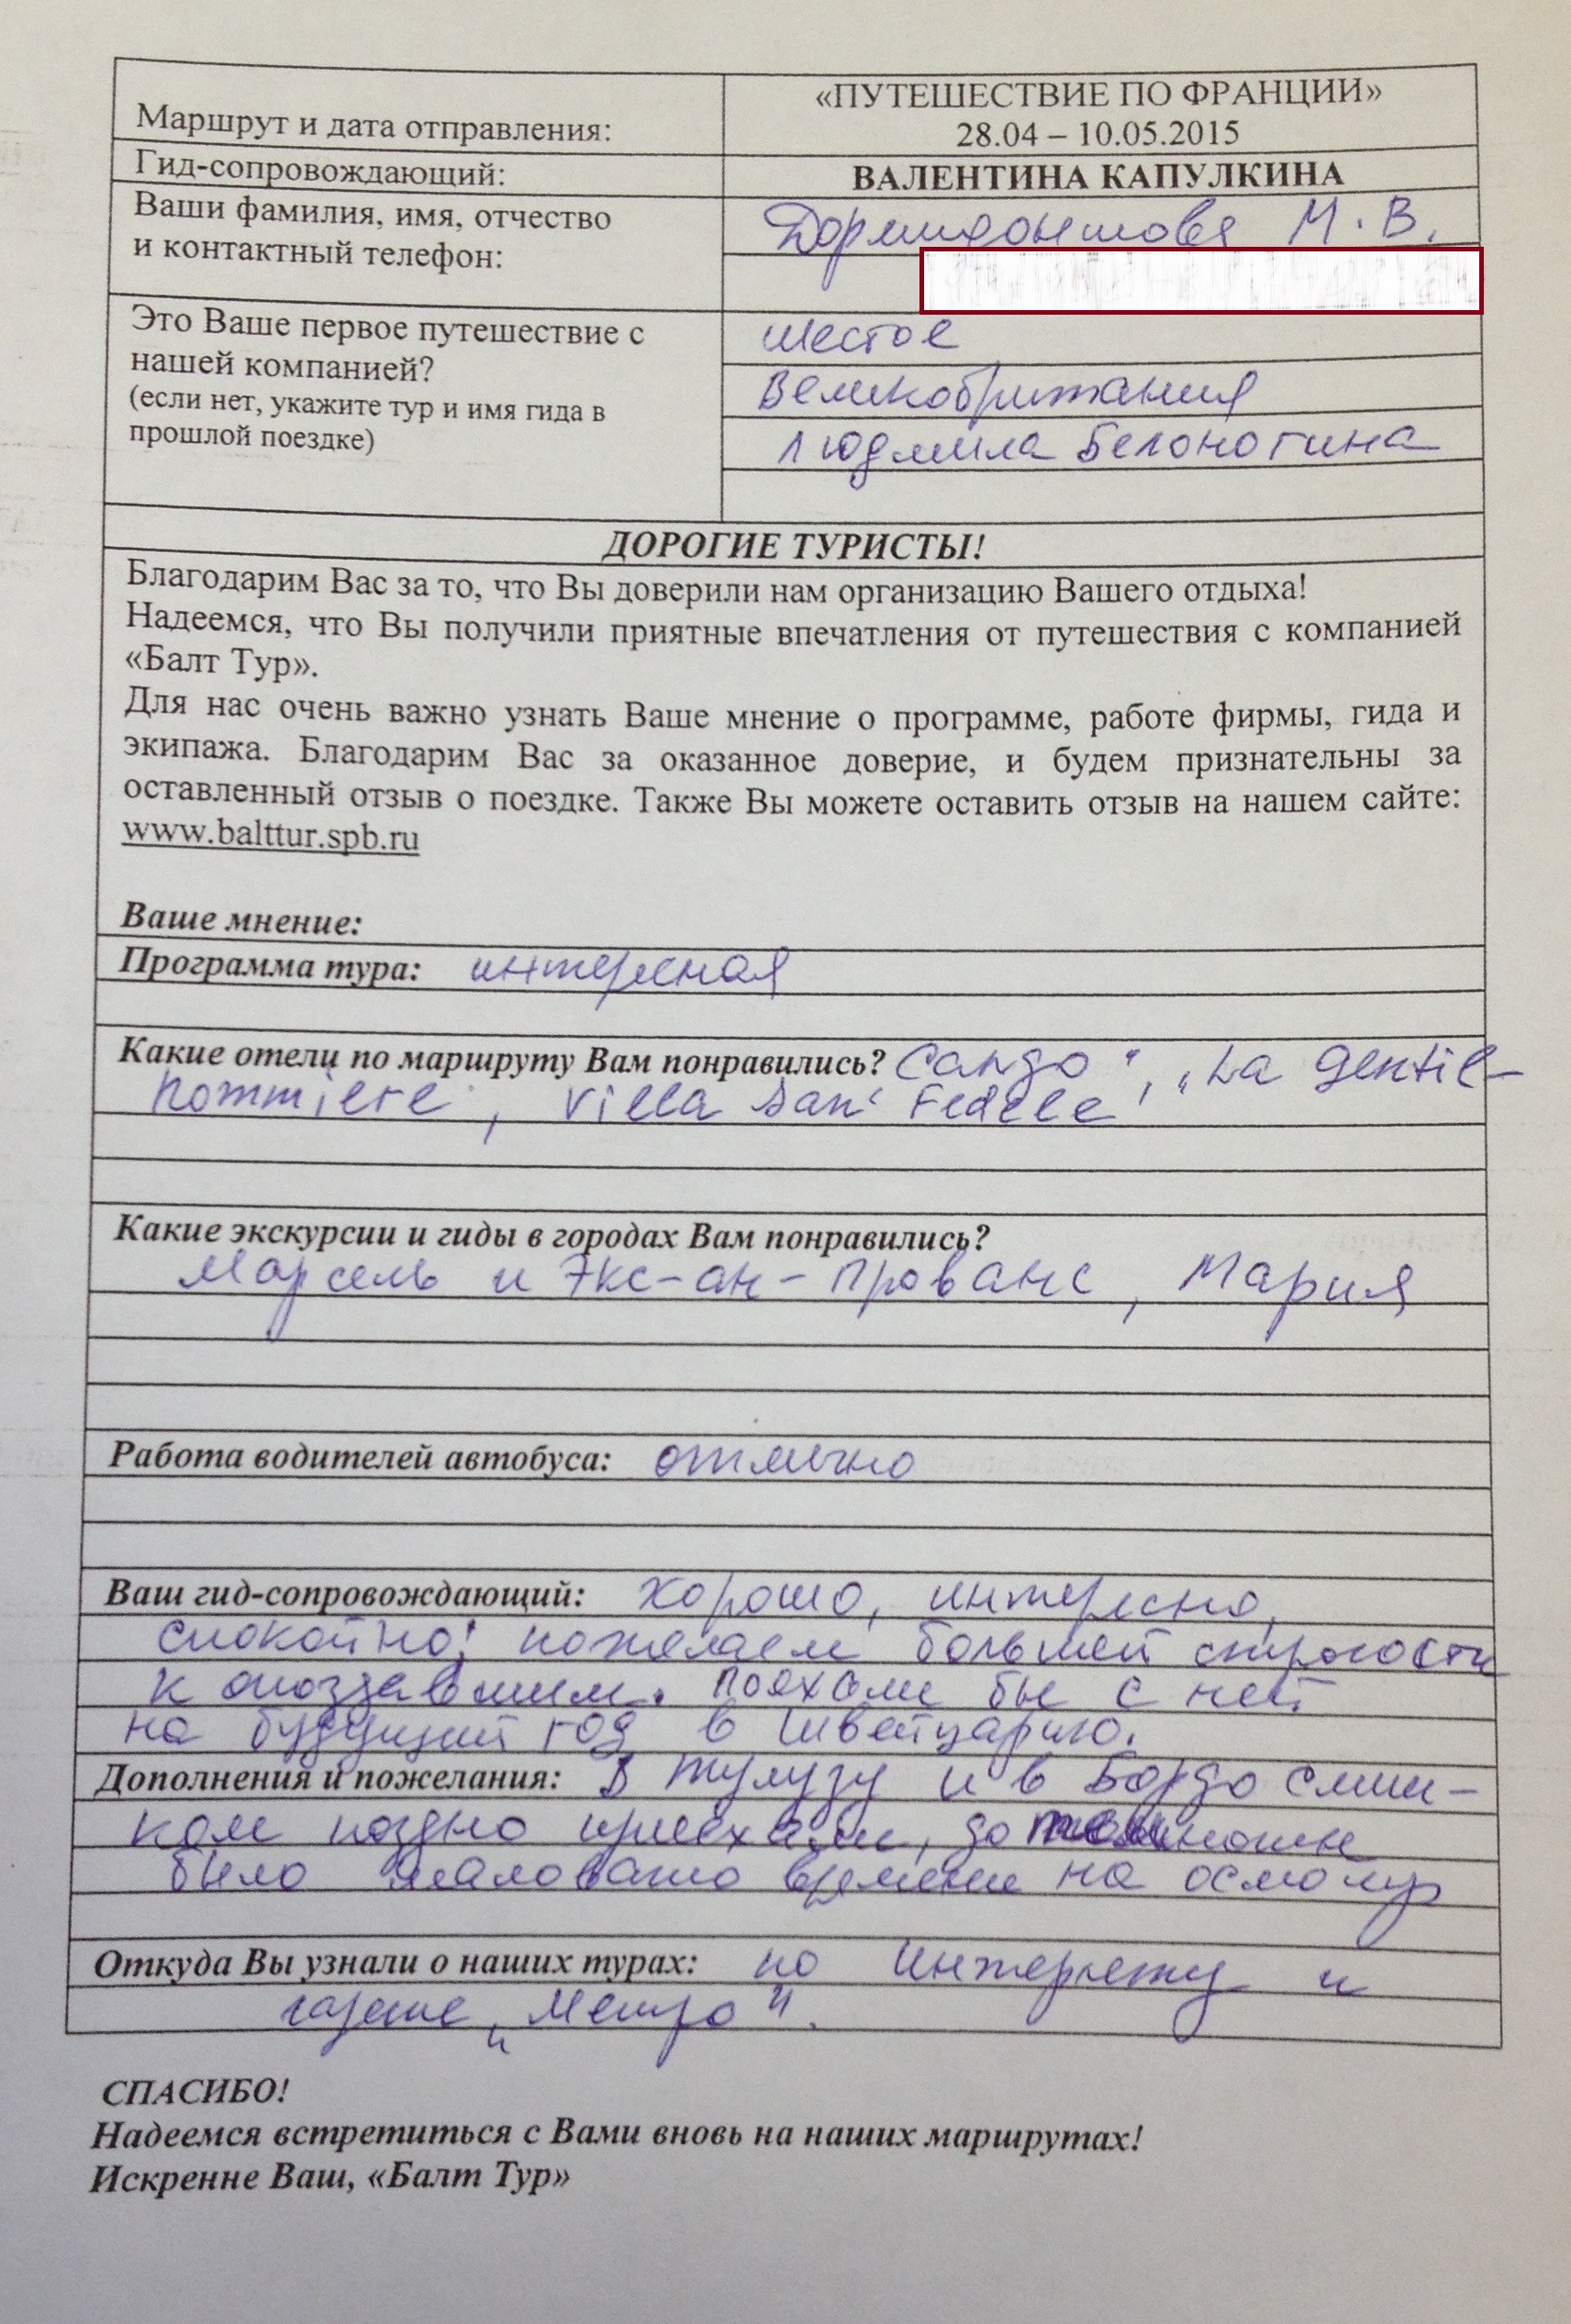 Маршрут и дата отправления:
«ПУТЕШЕСТВИЕ ПО ФРАНЦИИ»
28.04 – 10.05.2015
Гид-сопровождающий:
ВАЛЕНТИНА КАПУЛКИНА
Ваши фамилия, имя, отчество
и контактный телефон:
Дормидонтова М.В.
Это Ваше первое путешествие с
нашей компанией?
(если нет, укажите тур и имя гида в
прошлой поездке)
шестое
Великобритания
Людмила Белоногина
ДОРОГИЕ ТУРИСТЫ!
Благодарим Вас за то, что Вы доверили нам организацию Вашего отдыха!
Надеемся, что Вы получили приятные впечатления от путешествия с компанией
«Балт Тур».
Для нас очень важно узнать Ваше мнение о программе, работе фирмы, гида и
экипажа. Благодарим Вас за оказанное доверие, и будем признательны за
оставленный отзыв о поездке. Также Вы можете оставить отзыв на нашем сайте:
www.balttur.spb.ru
Ваше мнение:
Программа тура: интересная
Какие отели по маршруту Вам понравились? „La Gentil-
hommiere", Villa San' Fedele"
Какие экскурсии и гиды в городах Вам понравились?
Марсель и Экс-ан-Прованс, Мария
Работа водителей автобуса: отлично
Ваш гид-сопровождающий: Хорошо, интересно,
спокойно; пожелаем большей строгости
к опоздавшим. Поехали бы с ней
на будущий год в Швейцарию.
Дополнения и пожелания: В Тулузу и в Бордо слиш-
ком поздно приехали, до темноты
было маловато времени на осмотр
Откуда Вы узнали о наших турах: по Интернету и
газете „Метро".
СПАСИБО!
Надеемся встретиться с Вами вновь на наших маршрутах!
Искренне Ваш, «Балт Тур»